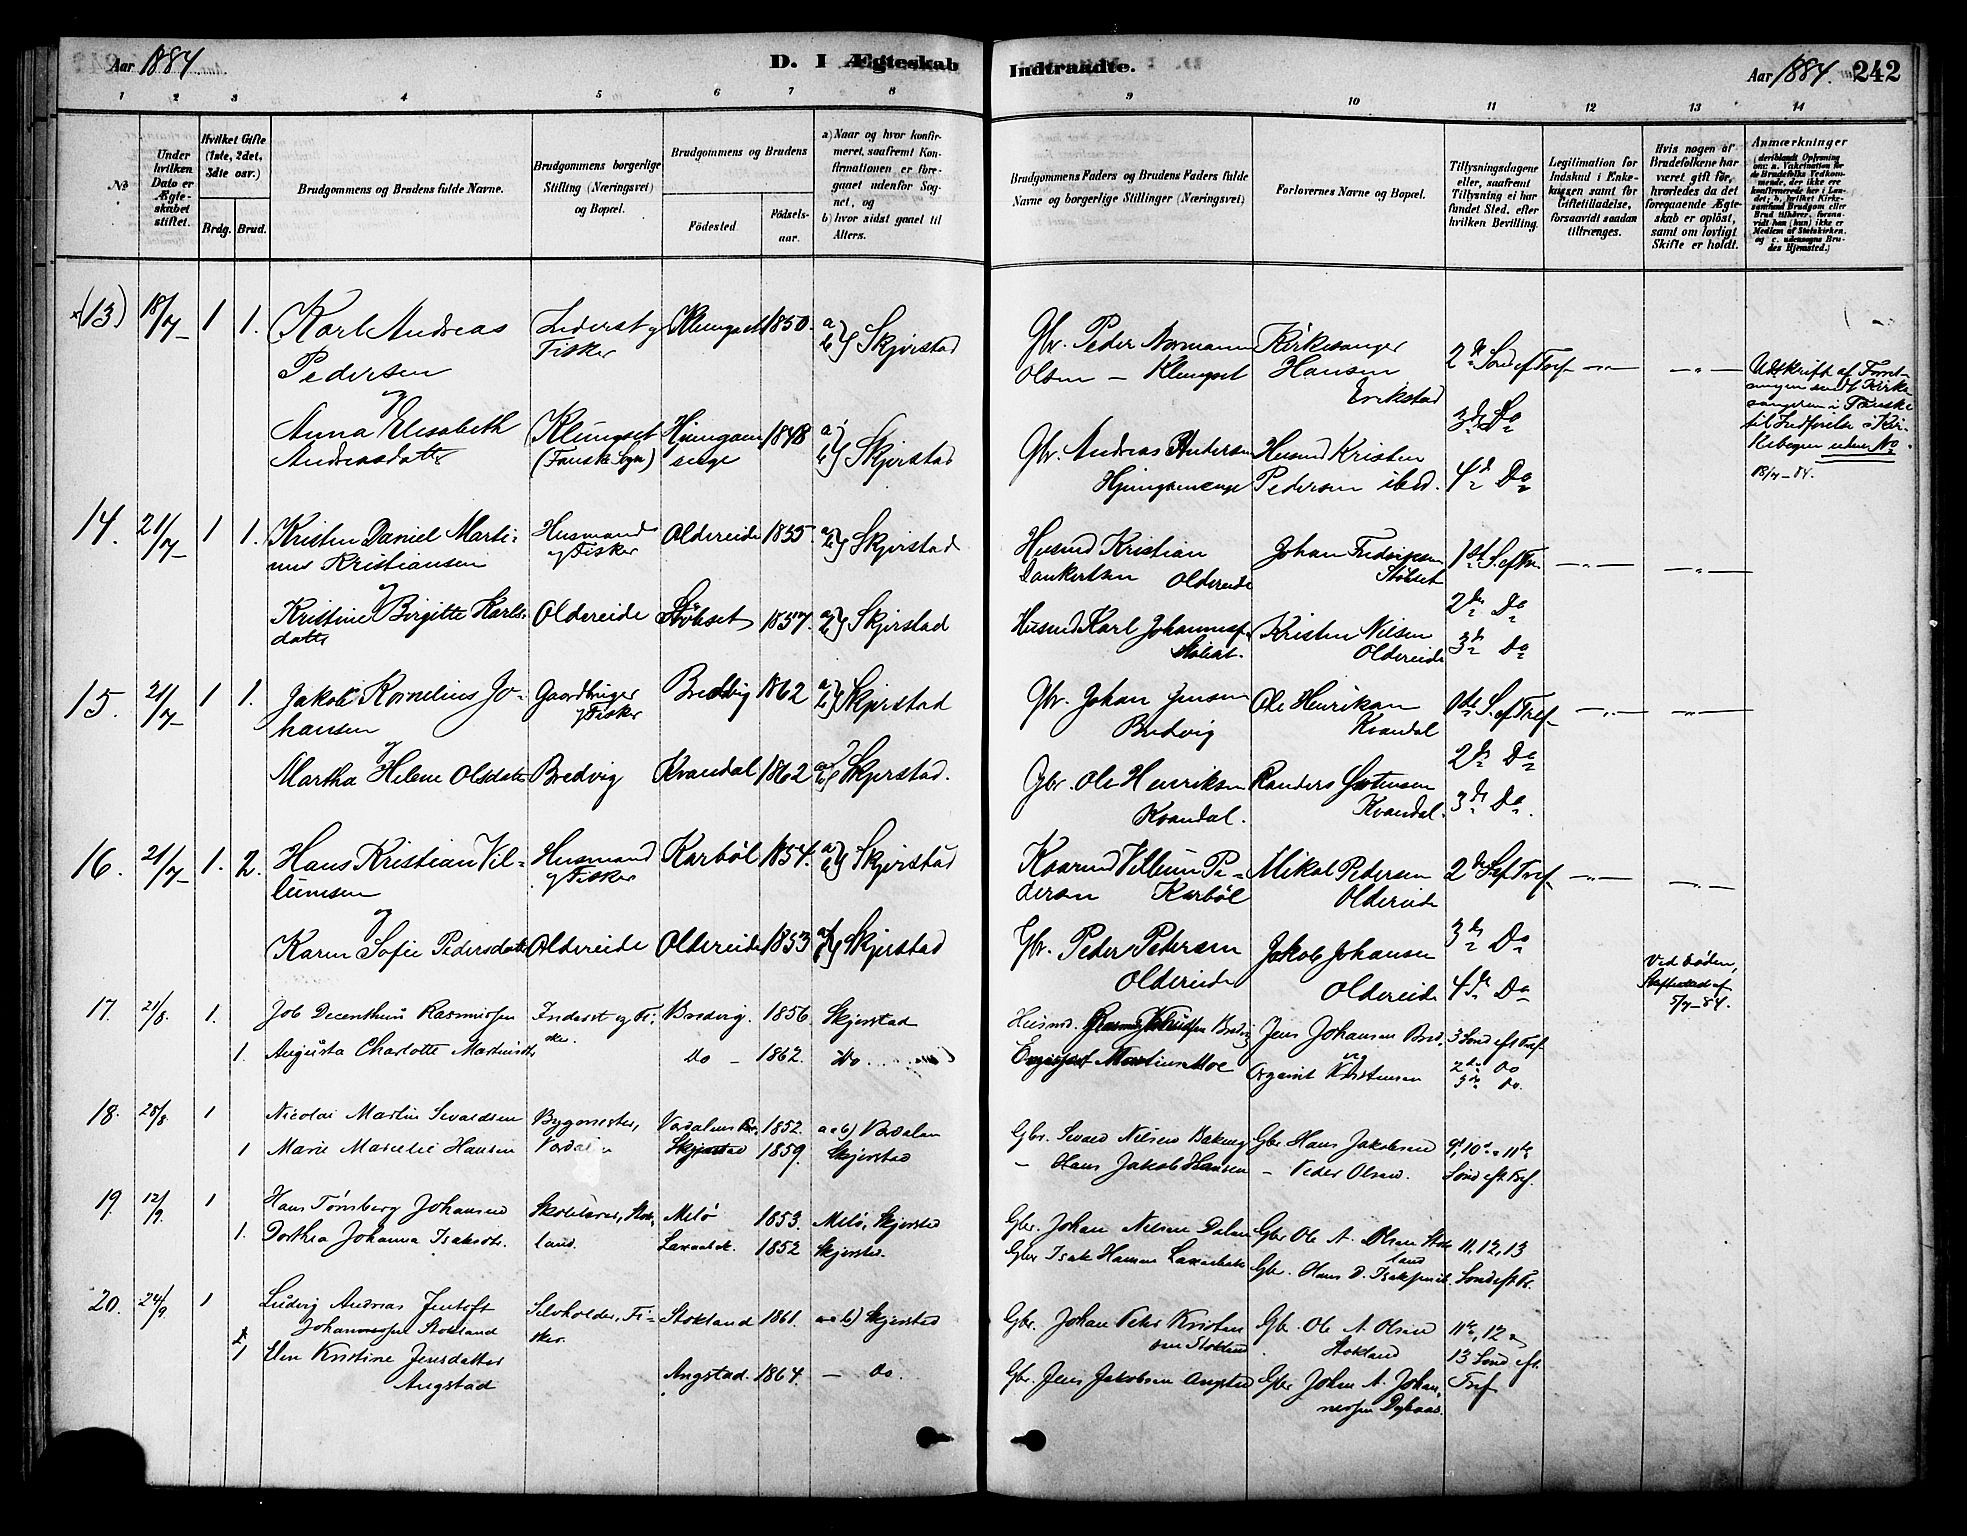 Aar 1884
D. I Ægteskab
Indtraadte.
Aar 1884. 242
1 2 3 4 5 6 7 8 9 10 11 12 13 14
No
Under hvilken Dato er Ægteskabet stiftet.
Hvilket Gifte (1ste, 2det, 3die osv.)
Brdg. Brud.
Brudgommens og Brudens fulde Navne.
Brudgommens borgerlige Stilling (Næringsvei) og Bopæl.
Brudgommens og Brudens
Födested
Födselsaar.
a) Naar og hvor konfirmeret, saafremt Konfirmationen er foregaaet udenfor Sognet, og
b) hvor sidst gaaet til Alters.
Brudgommens Faders og Brudens Faders fulde Navne og borgerlige Stillinger (Næringsvei)
Forlovernes Navne og Bopæl.
Tillysningsdagene eller, saafremt Tillysning ei har fundet Sted, efter hvilken Bevilling.
Legitimation for Indskud i Enkekassen samt for Giftetilladelse, forsaavidt saadan tiltrænges.
Hvis nogen af Brudefolkene har været gift før, hvorledes da det foregaaende Ægteskab er oplöst, samt om lovligt Skifte er holdt.
Anmærkninger
(13) 18/7 1 1. Karl Andreas Pedersen Lederst og Fisker Klungset 1850. a b} Skjerstad Gbr. Peder Normann Olsen - Klungset Kirkesanger Hansen Erikstad 2de Sønd ef Tref
og Anna Elisabeth Andreasdatter Klungset (Fauske Sogn) 1848 a b} Skjerstad Gbr. Andreas Andersen Husmd Kristen Pedersen ibid. 3de Do 4de Do
Udskrift af Kirkesangeren i Fauske til Indførelse i Kirkebogen uden No
18/7-84.
14. 21/7 1 1. Kristen Daniel Martinus Kristiansen Husmand og Fisker Oldereide 1855 a b} Skjerstad Husmd Kristian Dankertsen Oldereide Johan Fredriksen Stølset 1ste S. ef Tr.
og Kristine Birgitte Karlsdatter Oldereide Stølset 1857. a b} Skjerstad Husmd Karl Johannes Stølset. Kristen Nilsen Oldereide 2de Do 3de Do
15. 21/7 1 1. Jakob Kornelius Johansen Gaardbruger og Fisker Bredvig 1862 a b} Skjerstad Gbr. Johan Jensen Bredvig Ole Henriksen Kvandal 1ste S. ef Tref
og Martha Helene Olsdatter Bredvig Kvandal 1862 a b} Skjerstad. Gbr. Ole Henriksen Kvandal. Randers Sørensen Kvandal. 2de Do 3de Do.
16. 21/7 1. 2. Hans Kristian Villumsen Husmand og Fisker Karbøl 1854. a b} Skjerstad Villum Pedersen Karbøl Mikal Pedersen Oldereide 2de S ef Tref
og Karen Sofie Pedersdatter Oldereide Oldereide 1853 a b} Skjerstad Gbr. Peder Petersen Oldereide Jakob Johansen Oldereide 3de Do 4de Do
Ved Døden, 5/7-84.
17. 21/8. 1. Job Decenthius Rasmussen Inderst og Fisker. Bredvig. 1856. Skjerstad Husmd. Rasmus Knudsen Bredvig Jens Johansen Bred. 3 Sønd eft Tref
1. Augusta Charlotte Martinsdtr Do - 1862. Do. Martinus Moe og Kristensen 2de Do 3de Do.
18. 28/8 1 Nicolai Martin Sevaldsen Bygmester, Værdalen 1852. a o b) Værdalen Gbr. Sevald Nilsen Gbr Hans Jakobsen 9d, 10de o 11te
1 Marie Marcelie Hansen Skjerstad 1859. Skjerstad - Hans Jakob Hansen - Peder Olsen. Sønd eft Tref.
19. 12/9. 1 Hans Tønsberg Johansen Skolelærer, Stokland. Melø 1853. Melø, Skjerstad Gbr. Johan Nilsen Gbr Ole A. Olsen Stokland 11, 12, 13
1. Dorthea Johanna Isaksdtr. 1852 Skjerstad. Gbr Isak Hansen Gbr. Hans D. Isaksen Sønd eft Tr.
20. 24/9. 1 Ludvig Andreas Jentoft Johannessen Stokland Selvholder, Fisker. Stokland 1861. a o b) Skjerstad Gbr. Johan Peter Kristensen Stokland Gbr. Ole A. Olsen Stokland 11te, 12 o 13 Sønd eft. Tref
1 Elen Kristine Jensdatter Angstad Angstad. 1864. - Do. Gbr. Jens Jakobsen Angstad Gbr Johan A. Johannessen